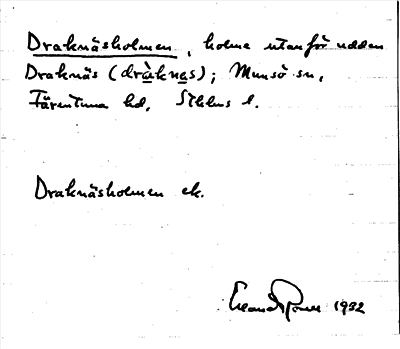 Draknäsholmen, holme utanför udden
Draknäs (dràknes); Munsö sn,
Färentuna hd, Sthlms l.
Draknäsholmen ek.
1932